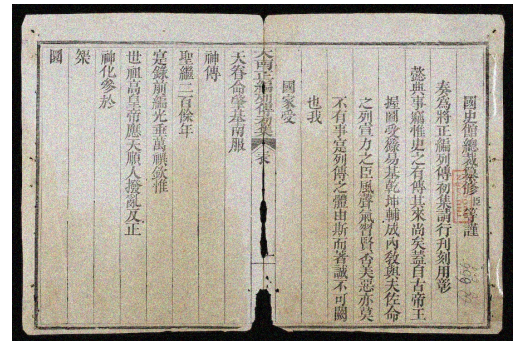 國史館總裁纂修臣等謹
奏為將正編列傳初集請行刊刻用彰
懿典事竊惟史之有傳其來尚矣蓋自古帝王
握圖受籙易基乾坤輔成內敎與夫佐命
之列宣力之臣風聲氣習賢否美惡亦莫
不有事寔列傳之體由斯而著誠不可闕
也我
國家受
大南正編列傳初集 表
天眷命肇基南服
神傳
聖繼二百餘年
寔錄前編應垂萬禩欽惟
世祖高皇帝應天順人撥亂反正
神化參於
榘
國